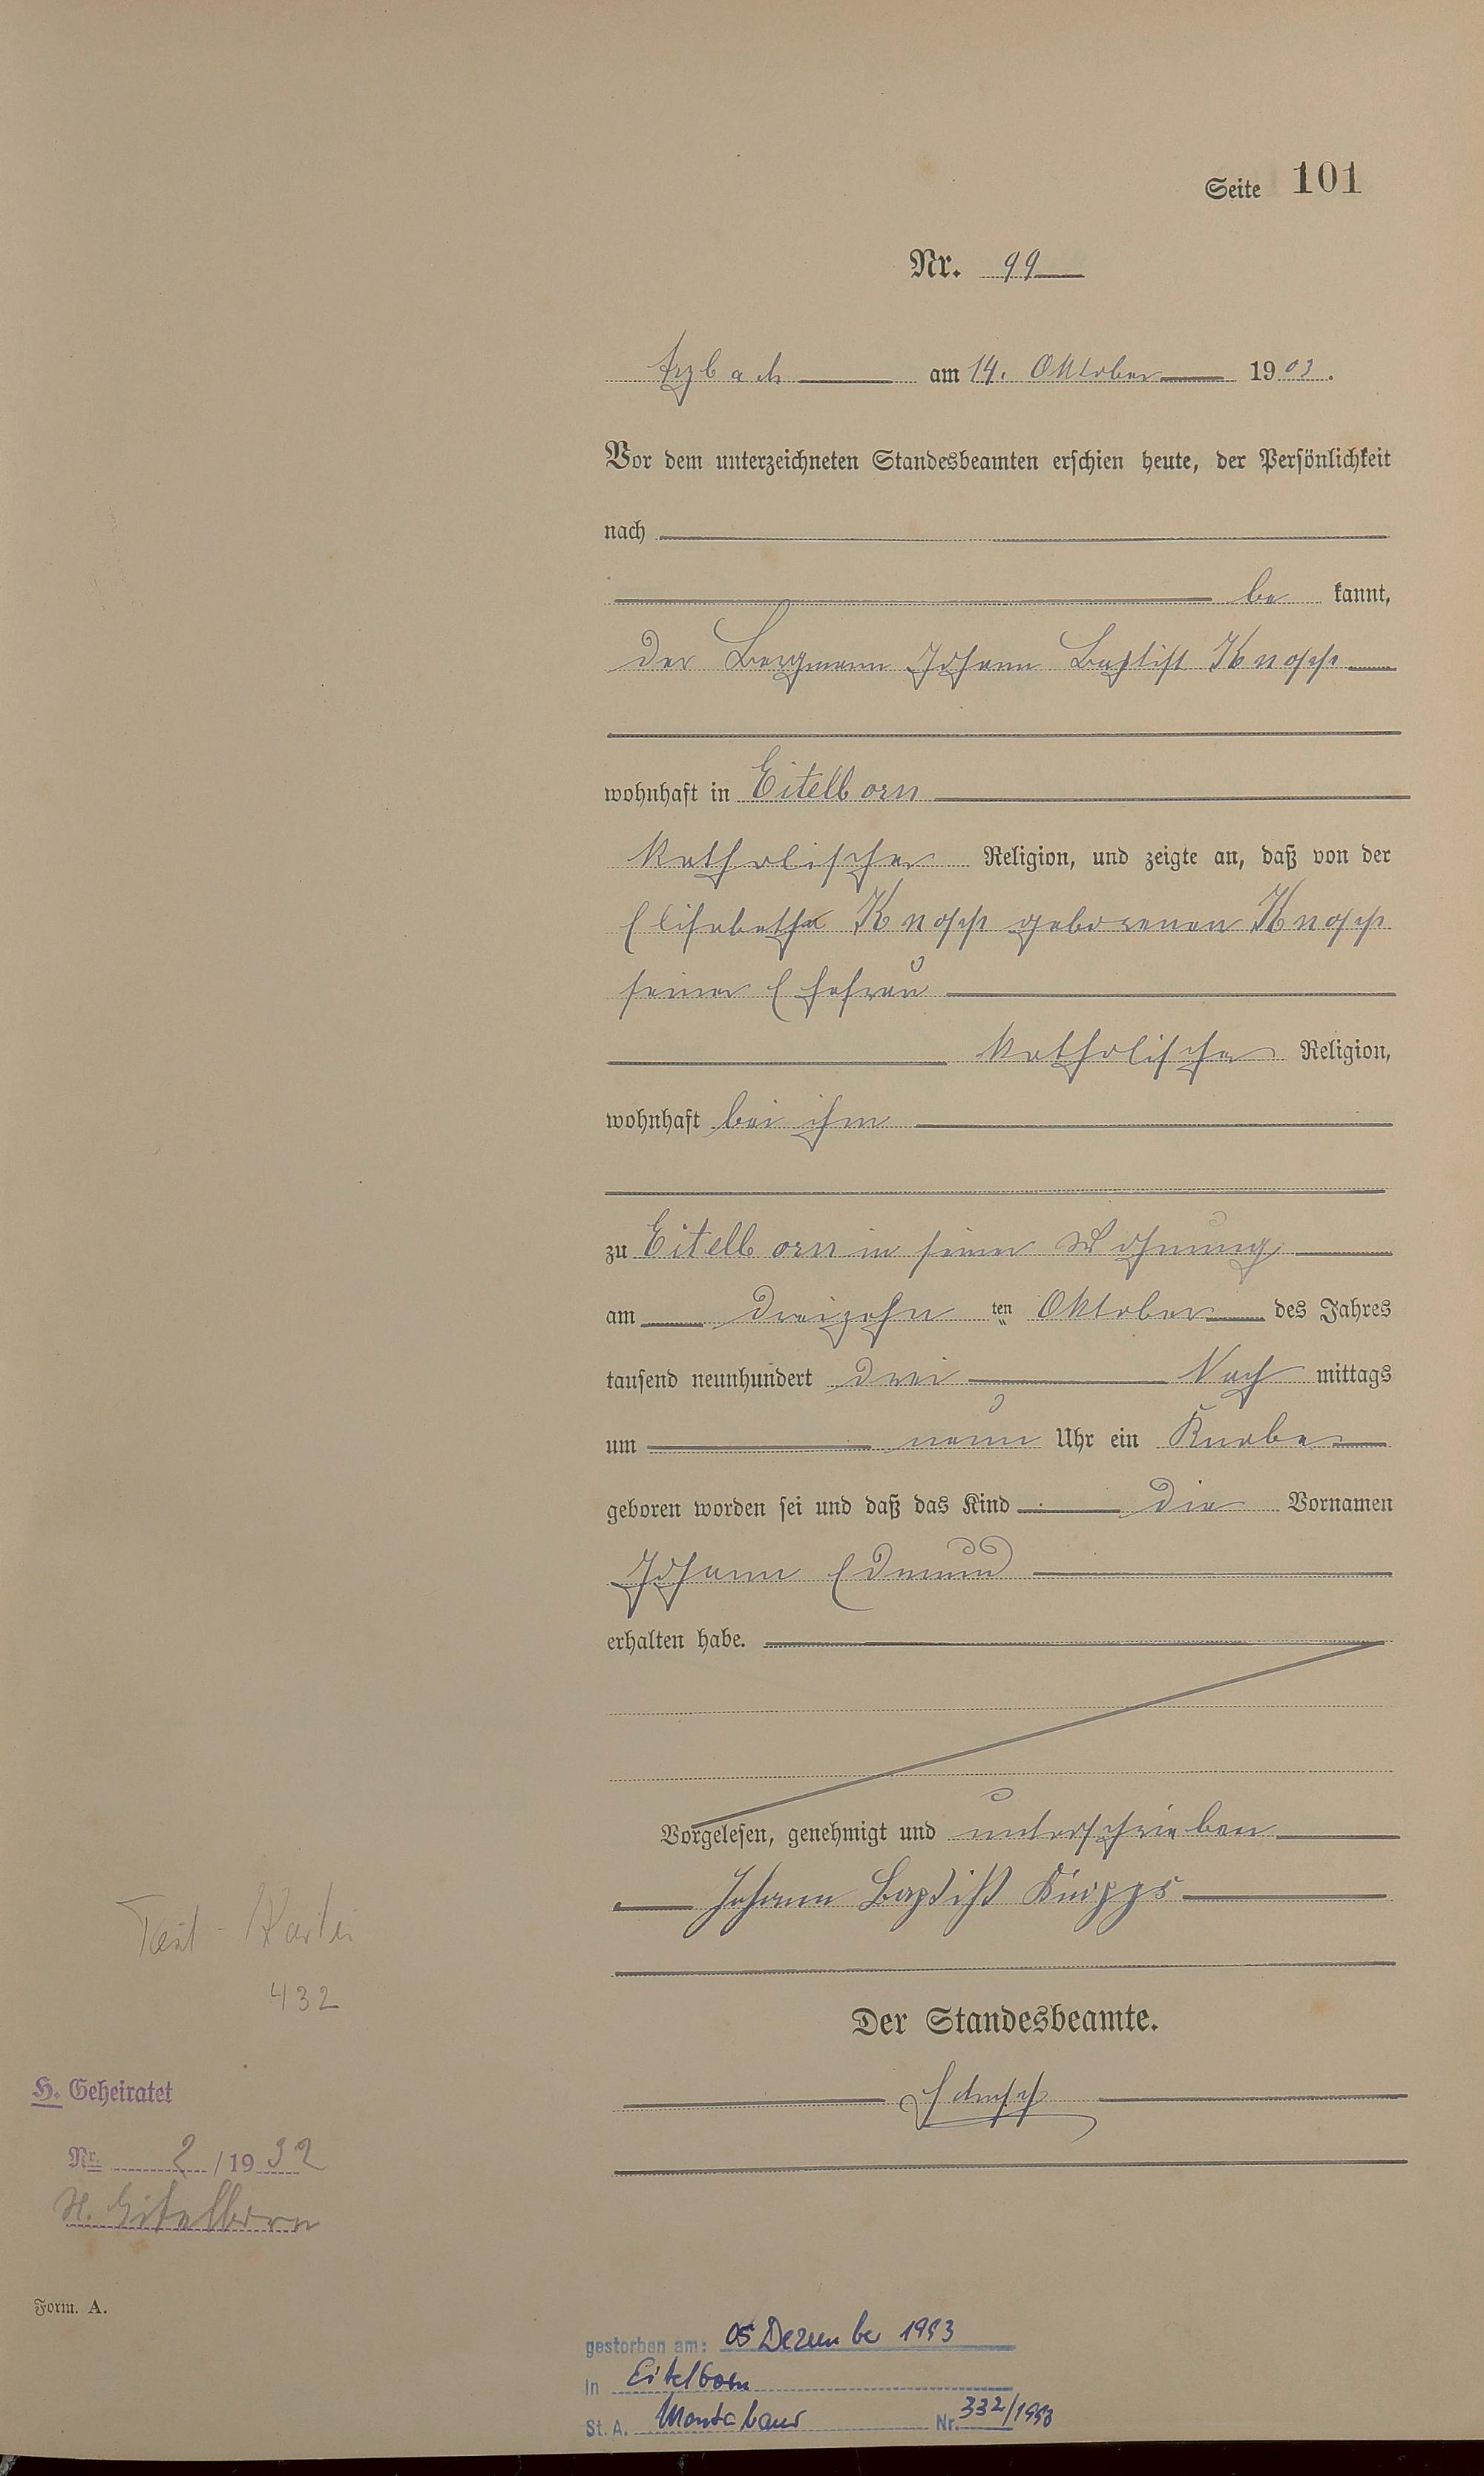 Seite 101
Nr. 99
Arzbach am 14. Oktober 1903.
Vor dem unterzeichneten Standesbeamten erschien heute, der Persönlichkeit
nach
be kannt,
der Bergmann Johann Baptist Knopp
wohnhaft in Eitelborn
katholischer Religion, und zeigte an, daß von der
Elisabetha Knopp geborenen Knopp
seiner Ehefrau
katholischer Religion,
wohnhaft bei ihm
zu Eitelborn in seiner Wohnung
am dreizehn ten Oktober des Jahres
tausend neunhundert drei Nach mittags
um neun Uhr ein Knabe
geboren worden sei und daß das Kind die Vornamen
Johann Edmund
erhalten habe.
Vorgelesen, genehmigt und unterschrieben
Johann Baptist
Der Standesbeamte.
432
H. Geheiratet
Nr. 2 / 19 32
St. Eitelborn
Form. A.
gestorben am: 05 Dezember 1993
in Eitelborn
St. A. Montabaur Nr. 332/1993